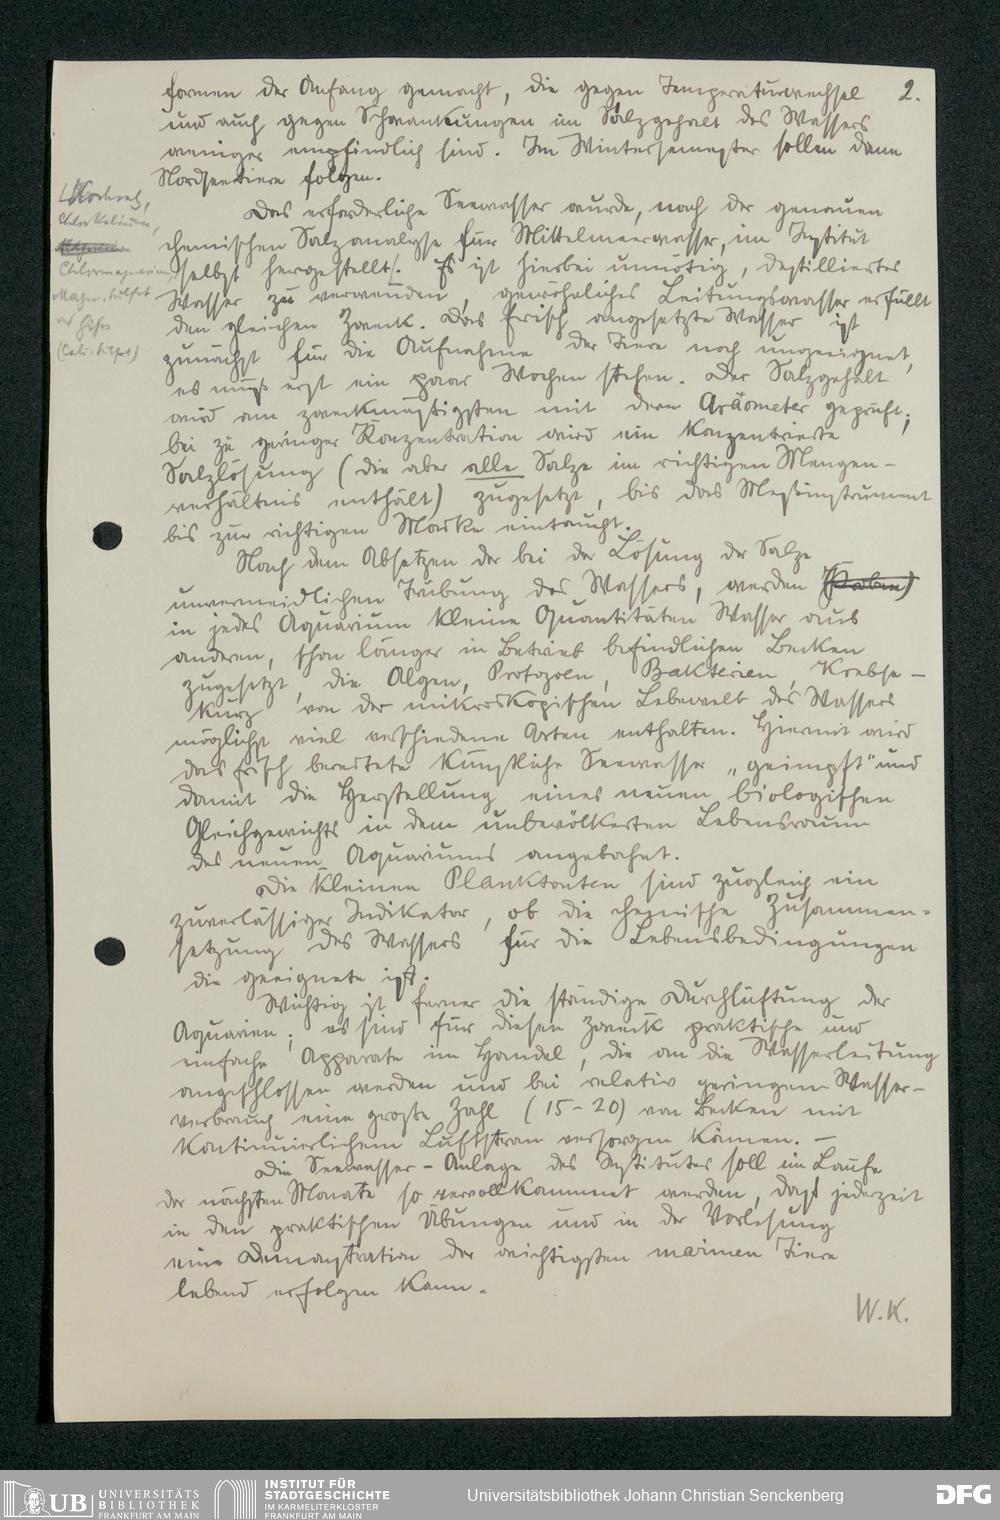 2.
formen der Anfang gemacht, die gegen Temperaturwechsel
und auch gegen Schwankungen im Salzgehalt des Wassers
weniger empfindlich sind. Im Wintersemester sollen dann
Nordseetiere folgen.
Kochsalz,
Chlorkalium,
Chlormagnesium,
Magn. sulfat
(Calc. sulfat)
Das erforderliche Seewasser wurde, nach der genauen
chemischen Salzanalyse für Mittelmeerwasser, im Institut
selbst hergestellt. Es ist hierbei unnötig, destilliertes
Wasser zu verwenden, gewöhnliches Leitungswasser erfüllt
den gleichen Zweck. Das frisch angesetzte Wasser ist
zunächst für die Aufnahme der Tiere noch ungeeignet,
es muß erst ein paar Wochen stehen. Der Salzgehalt
wird am zweckmäßigsten mit dem Aräometer geprüft;
bei zu geringer Konzentration wird ein konzentrierte
Salzlösung (die aber alle Salze im richtigen Mengen-
verhältnis enthält) zugesetzt, bis das Meßinstrument
bis zur richtigen Marke eintaucht.
Nach dem Absetzen der bei der Lösung der Salze
unvermeidlichen Trübung des Wassers, werden
in jedes Aquarium kleine Quantitäten Wasser aus
anderen, schon länger in Betrieb befindlichen Becken
zugesetzt, die Algen, Protozoen, Bakterien, Krebse –
kurz von der mikroskopischen Lebewelt des Wassers
möglichst viel verschiedene Arten enthalten. Hiermit wird
das frisch bereitete künstliche Seewasser „geimpft" und
damit die Herstellung eines neuen biologischen
Gleichgewichts in dem unbevölkerten Lebensraum
des neuen Aquariums angebahnt.
Die kleinen Planktonten sind zugleich ein
zuverlässiger Indikator, ob die chemische Zusammen-
setzung des Wassers für die Lebensbedingungen
die geeignete ist.
Wichtig ist ferner die ständige Durchlüftung der
Aquarien; es sind für diesen Zweck praktische und
einfache Apparate im Handel, die an die Wasserleitung
angeschlossen werden und bei relativ geringem Wasser-
verbrauch eine große Zahl (15–20) von Becken mit
kontinuierlichem Luftstrom versorgen können. –
Die Seewasser-Anlage des Institutes soll im Laufe
der nächsten Monate so vervollkommnet werden, daß jederzeit
in den praktischen Übungen und in der Vorlesung
eine Demonstration der wichtigsten marinen Tiere
lebend erfolgen kann.
W.K.
UB UNIVERSITÄTS
BIBLIOTHEK
FRANKFURT AM MAIN
INSTITUT FÜR
STADTGESCHICHTE
IM KARMELITERKLOSTER
FRANKFURT AM MAIN
Universitätsbibliothek Johann Christian Senckenberg
DFG